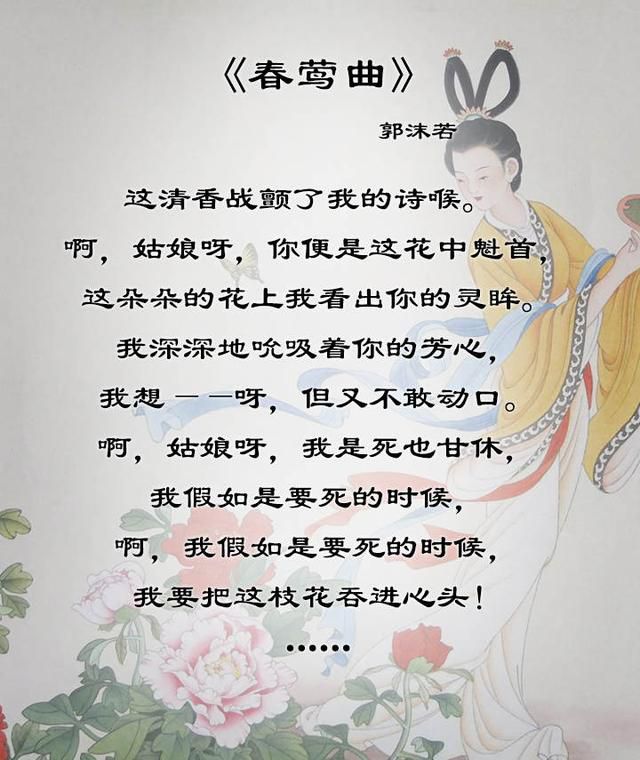 《春莺曲》
郭沫若
这清香战颤了我的诗喉。
啊，姑娘呀，你便是这花中魁首，
这朵朵的花上我看出你的灵眸。
我深深地吮吸着你的芳心，
我想－－呀，但又不敢动口。
啊，姑娘呀，我是死也甘休，
我假如是要死的时候，
啊，我假如是要死的时候，
我要把这枝花吞进心头！
••••••